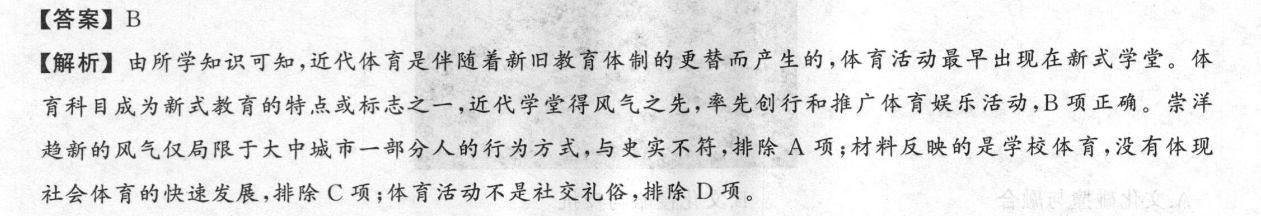 【答案】B
【解析】由所学知识可知,近代体育是伴随着新旧教育体制的更替而产生的,体育活动最早出现在新式学堂。体
育科目成为新式教育的特点或标志之一,近代学堂得风气之先,率先创行和推广体育娱乐活动,B 项正确。崇洋
趋新的风气仅局限于大中城市一部分人的行为方式,与史实不符,排除 A 项;材料反映的是学校体育,没有体现
社会体育的快速发展,排除 C 项;体育活动不是社交礼俗,排除 D 项。